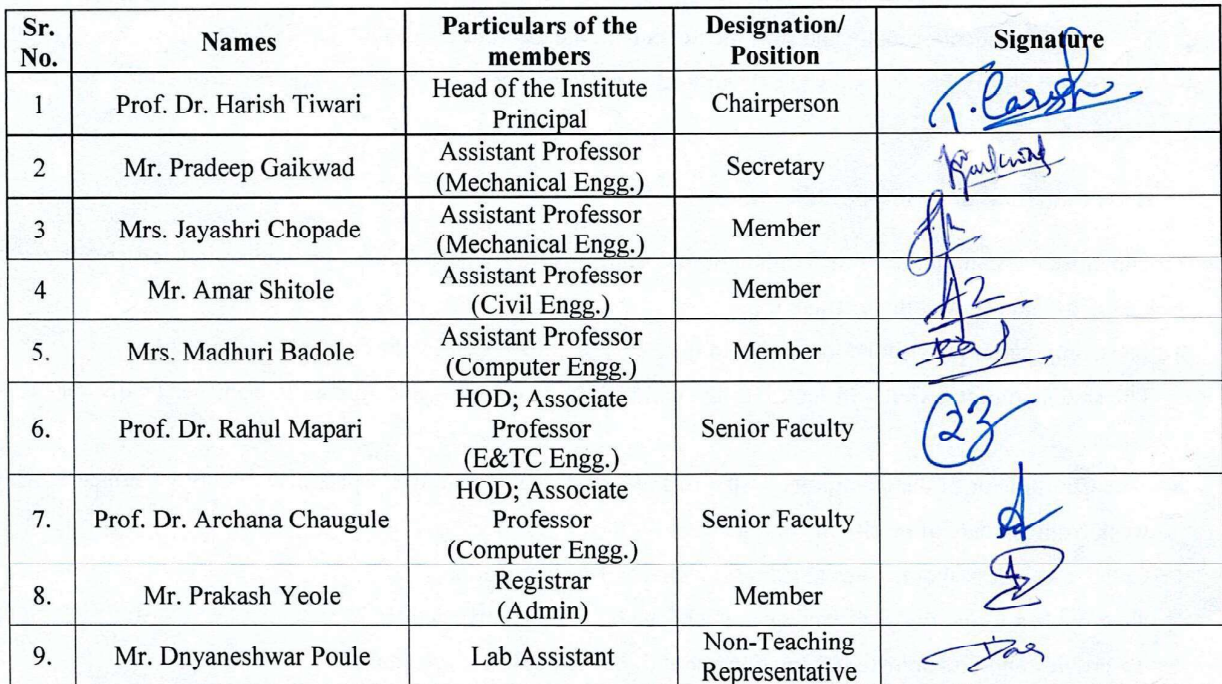 Sr. No. Names Particulars of the members Designation/ Position Signature
1 Prof. Dr. Harish Tiwari Head of the Institute Principal Chairperson
2 Mr. Pradeep Gaikwad Assistant Professor (Mechanical Engg.) Secretary
3 Mrs. Jayashri Chopade Assistant Professor (Mechanical Engg.) Member
4 Mr. Amar Shitole Assistant Professor (Civil Engg.) Member
5. Mrs. Madhuri Badole Assistant Professor (Computer Engg.) Member
6. Prof. Dr. Rahul Mapari HOD; Associate Professor (E&TC Engg.) Senior Faculty
7. Prof. Dr. Archana Chaugule HOD; Associate Professor (Computer Engg.) Senior Faculty
8. Mr. Prakash Yeole Registrar (Admin) Member
9. Mr. Dnyaneshwar Poule Lab Assistant Non-Teaching Representative